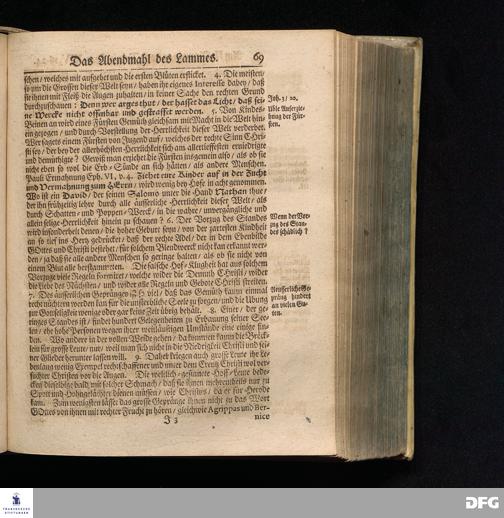 Das Abendmahl des Lammes. 69
schen / welches mit aufgehet und die ersten Blüten ersticket. 4. Die meisten /
so um die Grossen dieser Welt seyn / haben ihr eigenes Interesse dabey / daß
sie ihnen mit Fleiß die Augen zuhalten / in keiner Sache den rechten Grund
durchzuschauen: Denn wer arges thut / der hasset das Licht / daß sei-
ne Wercke nicht offenbar und gestraffet werden. 5. Von Kindes-
Beinen an wird eines Fürsten Gemüth gleichsam mit Macht in die Welt hin-
ein gezogen / und durch Vorstellung der Herrlichkeit dieser Welt verderbet.
Wer sagets einem Fürsten von Jugend auf / welches der rechte Sinn Chri-
sti sey / der bey der allerhöchsten Herrlichkeit sich am allertieffesten erniedrigte
und demüthigte? Gewiß man erziehet die Fürsten ins gemein also / als ob sie
nicht eben so wol die Erb-Sünde an sich hätten / als andere Menschen.
Pauli Ermahnung Eph. VI, v. 4. Ziehet eure Kinder auf in der Zucht
und Vermahnung zum HErrn / wird wenig bey Hofe in acht genommen.
Wo ist ein David / der seinen Salomo unter die Hand Nathan thue /
der ihn frühzeitig lehre durch alle äusserliche Herrlichkeit dieser Welt / als
durch Schatten- und Poppen-Werck / in die wahre / unvergängliche und
allein selige Herrlichkeit hinein zu schauen? 6. Der Vorzug des Standes
wird insonderheit denen / die hoher Geburt seyn / von der zartesten Kindheit
an so tief ins Hertz gedrücket / daß der rechte Adel / der in dem Ebenbilde
GOttes und Christi bestehet / für solchem Blendwerck nicht kan erkant wer-
den / ja daß sie alle andere Menschen so geringe halten / als ob sie nicht von
einem Blut alle herstammeten. Die falsche Hof-Klugheit hat aus solchem
Vorzuge viele Regeln formiret / welche wider die Demuth Christi / wider
die liebe des Nächsten / und wider alle Regeln und Gebote Christi streiten.
7. Des äusserlichen Gepränges ist so viel / daß das Gemüth kaum einmal
recht nüchtern werden kan für die unsterbliche Seele zu sorgen / und die Ubung
zur Gottseligkeit wenige oder gar keine Zeit übrig behält. 8. Einer / der ge-
ringes Standes ist / findet hundert Gelegenheiten zu Erbauung seiner See-
len / ehe hohe Personen wegen ihrer weitläuftigen Umstände eine einige fin-
den. Wo andere in der vollen Weide gehen / da kommen kaum die Bröck-
lein für grosse Leute / nur / weil man sich nicht in die Niedrigkeit Christi und sei-
ner Glieder herunter lassen will. 9. Daher kriegen auch grosse Leute ihr Le-
benlang wenig Exempel rechtschaffener und unter dem Creutz Christi wol ver-
suchter Christen vor die Augen. Die weltlich-gesinnete Hoff-Leute bede-
cken dieselbige bald mit solcher Schmach / daß sie ihnen mehrentheils nur zu
Spott und Hohngelächter dienen müssen / wie Christus / da er für Herode
kam. Zum wenigsten lässet das grosse Gepränge ihnen nicht zu das Wort
GOttes von ihnen mit rechter Frucht zu hören / gleich wie Agrippas und Ber-
J 3
nice
Joh. 3 / 20.
Üble Auferzie-
hung der Für-
sten.
Wem der Vor-
zug des Stan-
des schädlich?
Aeusserliche Ge-
präng hindert
an vielen Gu-
ten.
FRANCKESCHE
STIFTUNGEN
DFG